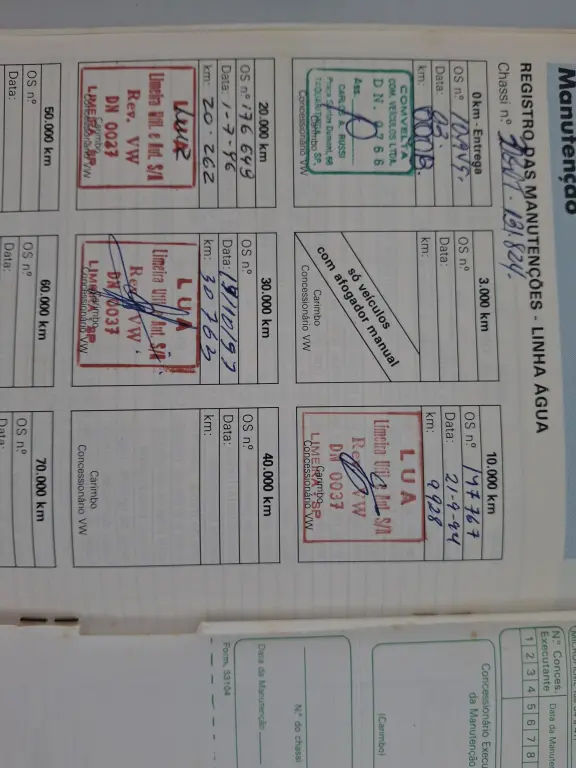 Manutenção
REGISTRO DAS MANUTENÇÕES - LINHA ÁGUA
Chassi n.º
0 km - Entrega
OS nº
Data:
km:
COMVELTA
COM. VEÍCULOS LTDA
Ass.
CARLOS RUSSI
Carimbo
Concessionário VW
3.000 km
OS nº
Data:
km:
só veículos
com afogador manual
Carimbo
Concessionário VW
10.000 km
OS nº 147767
Data: 21-9-94
km: 9928
LUA
Limeira Util. e Aut. S/A
Rev. VW
DN 0037
LIMEIRA SP
Carimbo
Concessionário VW
20.000 km
OS nº 176649
Data: 1-7-96
km: 20.262
LUA
Limeira Util. e Aut. S/A
Rev. VW
DN 0037
LIMEIRA SP
Carimbo
Concessionário VW
30.000 km
OS nº
Data: 19/10/97
km: 30762
LUA
Limeira Util. e Aut. S/A
Rev. VW
DN 0037
LIMEIRA SP
Carimbo
Concessionário VW
40.000 km
OS nº
Data:
km:
Carimbo
Concessionário VW
50.000 km
OS nº
Data:
60.000 km
OS nº
70.000 km
OS nº
Data:
N.º Conces.
Executante
Data da Manuten
1 2 3 4 5 6 7 8
Concessionário Execu
da Manutenção
(Carimbo)
N.º do chassi
Data da Manutenção
Form. 33104